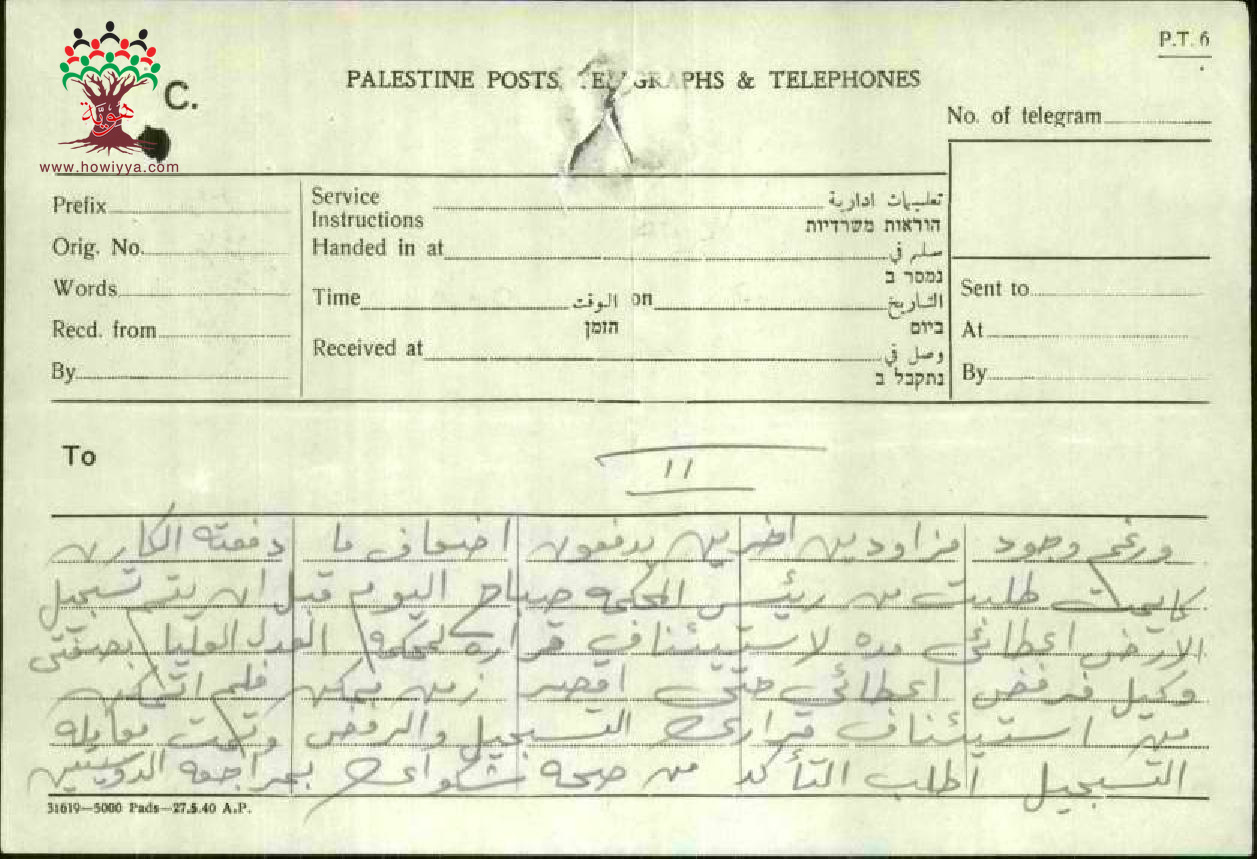 P.T. 6
PALESTINE POSTS, TELEGRAPHS & TELEPHONES
C.
هوية
www.howiyya.com
No. of telegram
Prefix
Orig. No.
Words
Recd. from
By
Service Instructions تعليمات ادارية
הוראות משרדיות
Handed in at سلم في
נמסר ב
Time الوقت on التاريخ
הזמן ביום
Received at وصل في
נתקבל ב
Sent to
At
By
To
١١
ورغم وجود مزاودين اخرين يدفعون اضعاف ما دفعته
طلبت من رئيس المحكمه صباح اليوم قبل ان يتم تسجيل
الارض اعطائي مده لاستيئناف قراره لمحكمة العدل العليا بصفتي
وكيل فرفض اعطائي حتى اقصر زمن يمكن فلم اتمكن
من استيئناف قراري التسجيل والرفض وتمت معامله
التسجيل اطلب التأكد من صحة شكواي بمراجعة الدوسيتين
31619—5000 Pads—27.5.40 A.P.